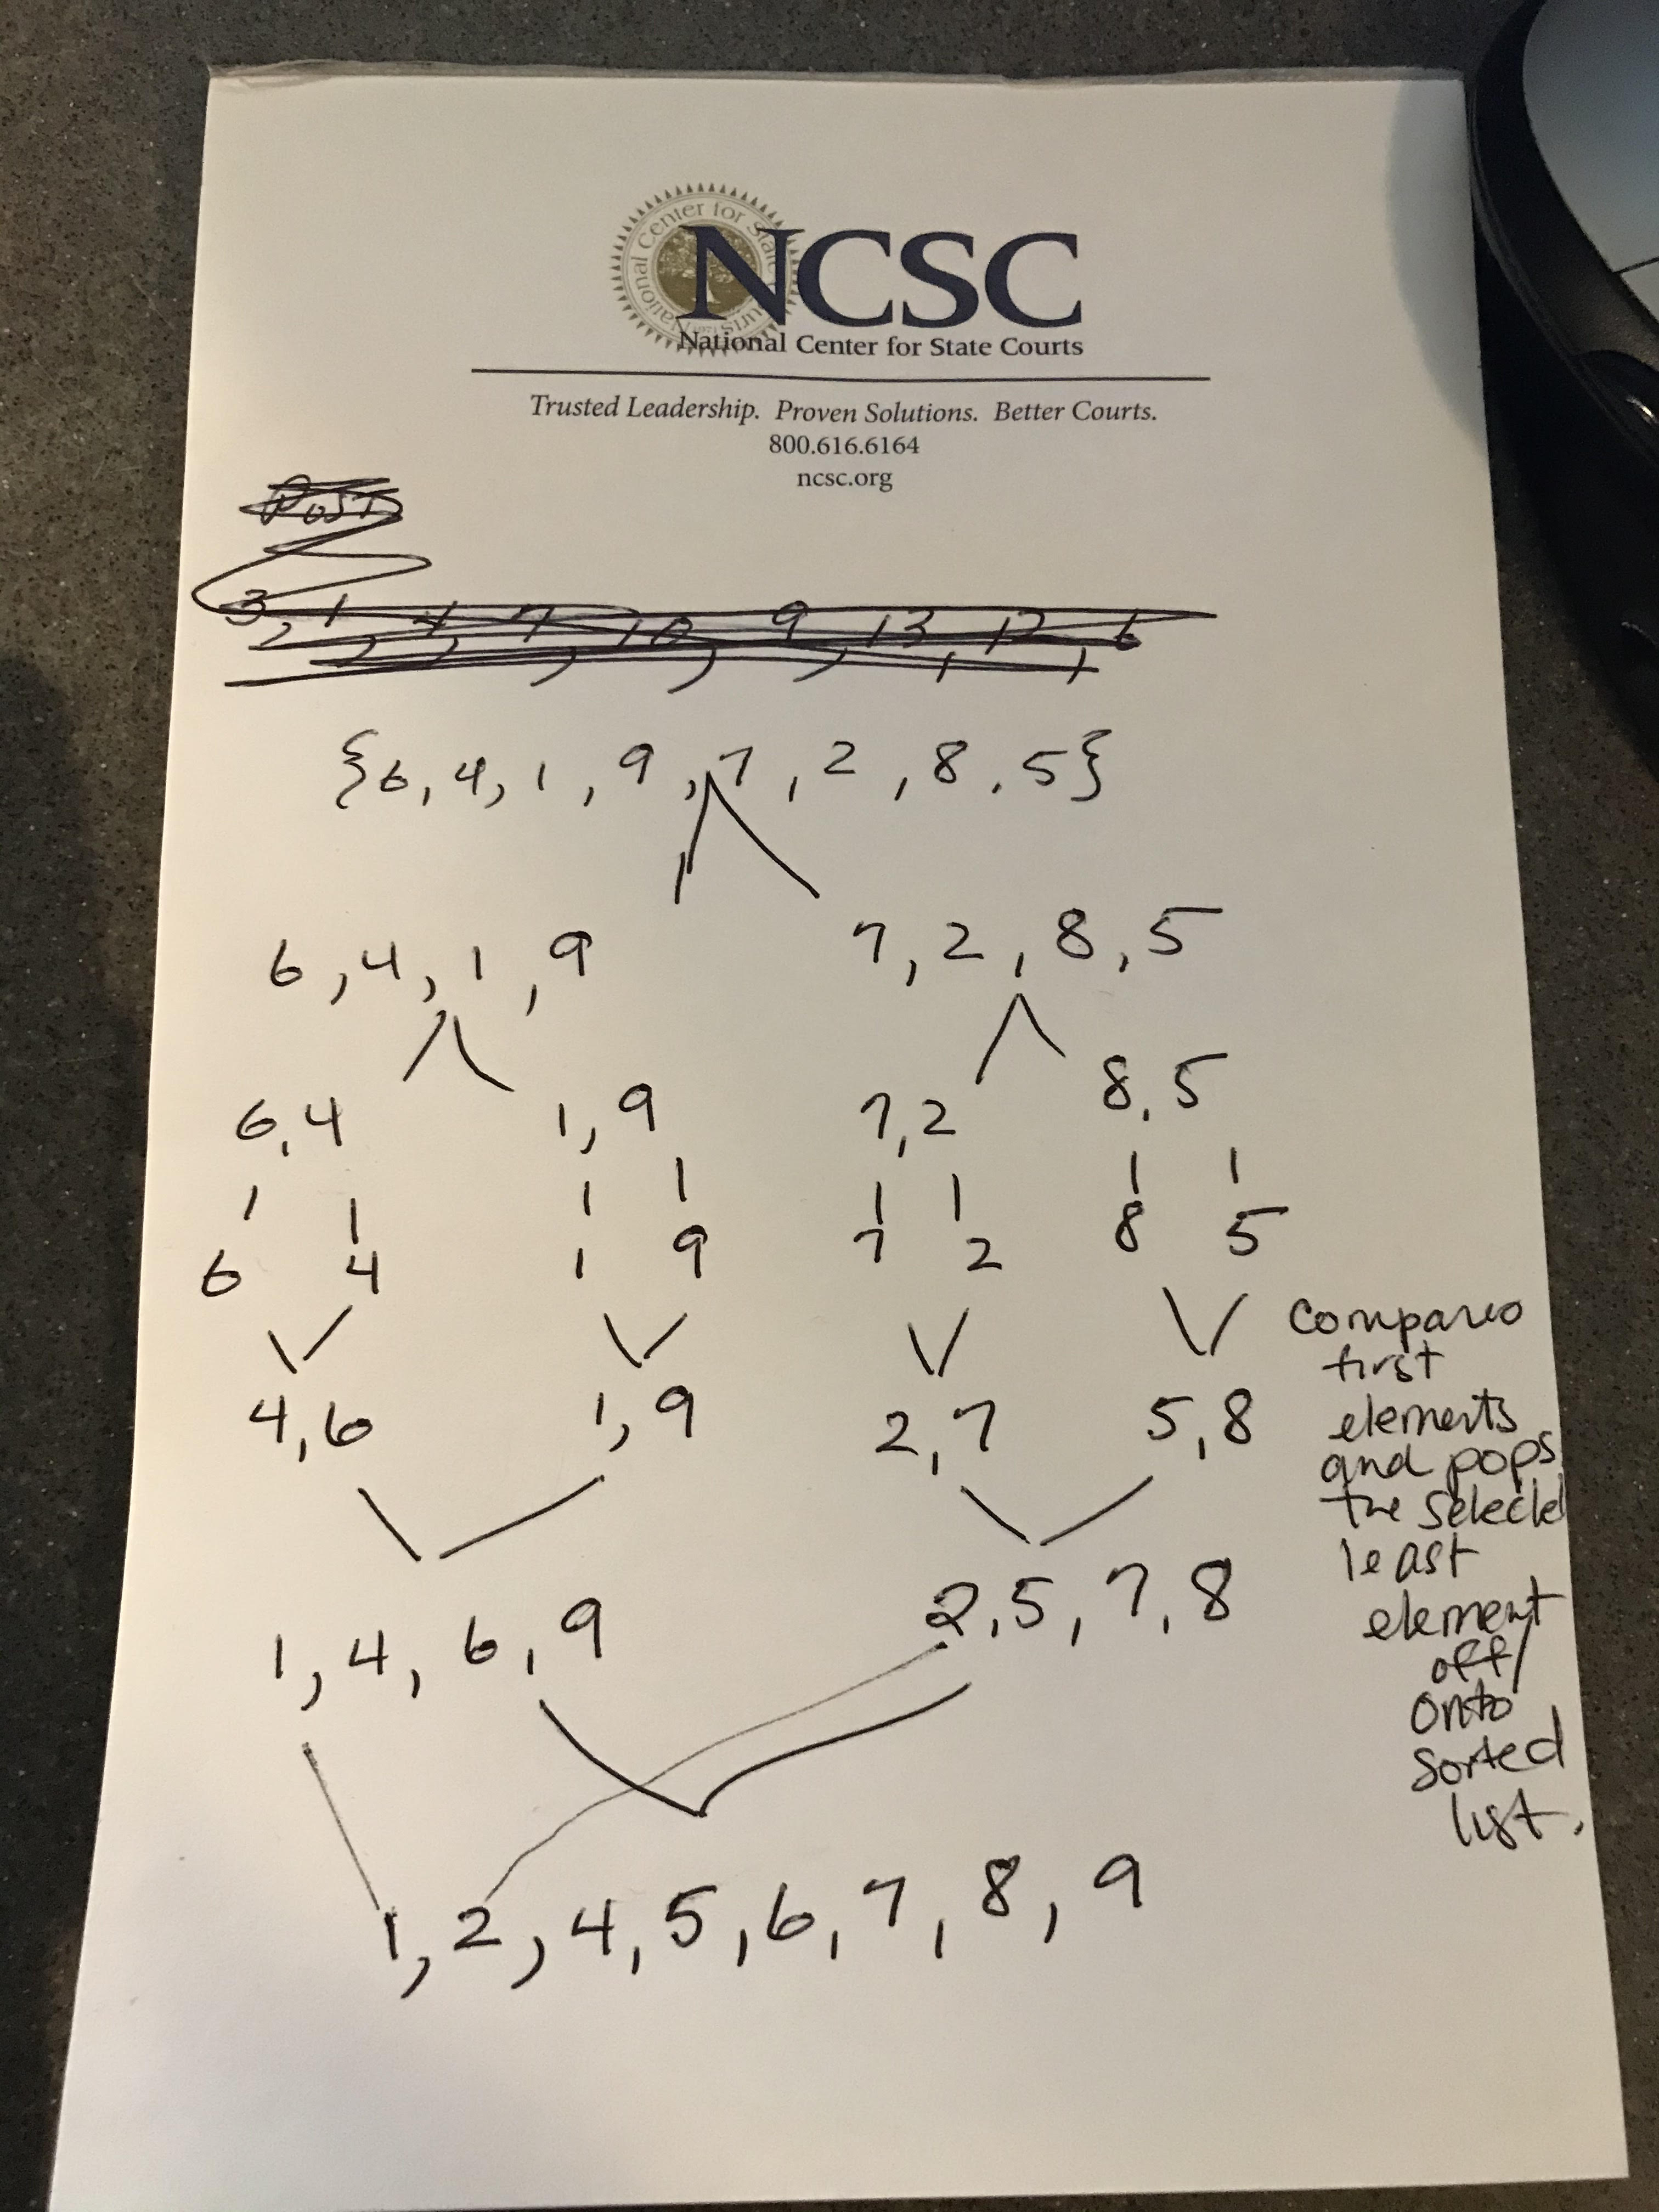 National Center for State Courts
NCSC
National Center for State Courts
Trusted Leadership. Proven Solutions. Better Courts.
800.616.6164
ncsc.org
POST
3, 1, 4, 7, 10, 9, 13, 12, 6
2
{6, 4, 1, 9, 7, 2, 8, 5}
6, 4, 1, 9 7, 2, 8, 5
6, 4 1, 9 7, 2 8, 5
6 4 1 9 7 2 8 5
4, 6 1, 9 2, 7 5, 8
1, 4, 6, 9 2, 5, 7, 8
1, 2, 4, 5, 6, 7, 8, 9
Compares
first
elements
and pops
the selected
least
element
off/
onto
sorted
list.